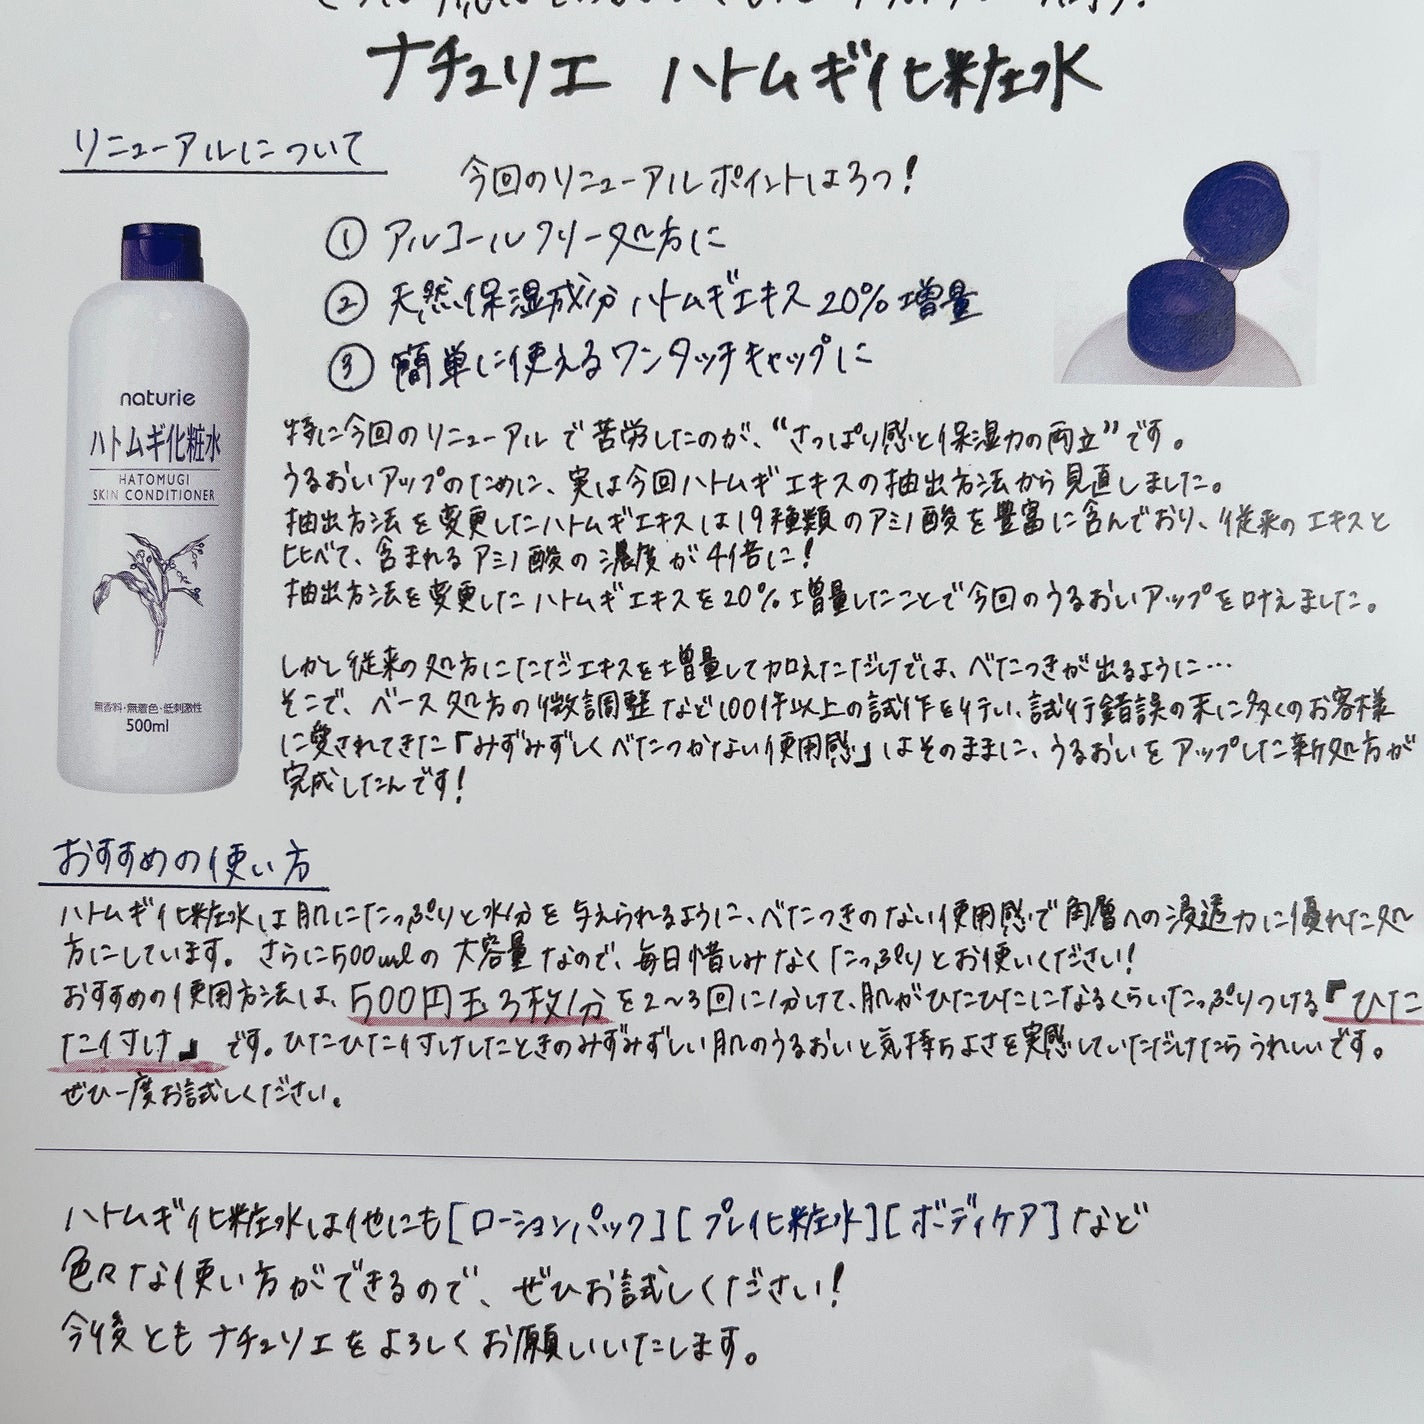 ナチュリエ ハトムギ化粧水
リニューアルについて
今回のリニューアルポイントは3つ!
① アルコールフリー処方に
② 天然保湿成分 ハトムギエキス 20%増量
③ 簡単に使えるワンタッチキャップに
naturie
ハトムギ化粧水
HATOMUGI
SKIN CONDITIONER
無香料・無着色・低刺激性
500ml
特に今回のリニューアルで苦労したのが、"さっぱり感と保湿力の両立"です。
うるおいアップのために、実は今回ハトムギエキスの抽出方法から見直しました。
抽出方法を変更したハトムギエキスは19種類のアミノ酸を豊富に含んでおり、従来のエキスと
比べて、含まれるアミノ酸の濃度が4倍に!
抽出方法を変更したハトムギエキスを20%増量したことで今回のうるおいアップを叶えました。
しかし従来の処方にただエキスを増量して加えただけでは、べたつきが出るように…
そこで、ベース処方の微調整など100件以上の試作を行い、試行錯誤の末に多くのお客様
に愛されてきた「みずみずしくべたつかない使用感」はそのままに、うるおいをアップした新処方が
完成したんです!
おすすめの使い方
ハトムギ化粧水は肌にたっぷりと水分を与えられるように、べたつきのない使用感で角層への浸透力に優れた処
方にしています。さらに500mlの大容量なので、毎日惜しみなくたっぷりとお使いください!
おすすめの使用方法は、500円玉3枚分を2~3回に分けて、肌がひたひたになるくらいたっぷりつける『ひた
た付け』です。ひたひた付けしたときのみずみずしい肌のうるおいと気持ちよさを実感していただけたらうれしいです。
ぜひ一度お試しください。
ハトムギ化粧水は他にも[ローションパック][プレ化粧水][ボディケア]など
色々な使い方ができるので、ぜひお試しください!
今後ともナチュリエをよろしくお願いいたします。